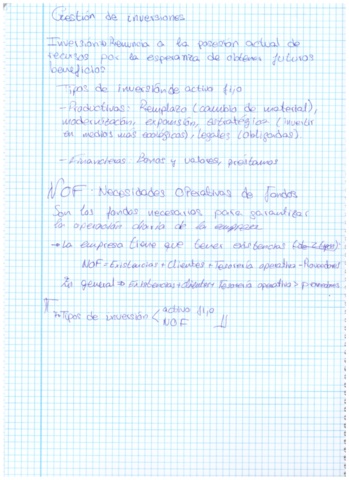 Gestión de inversiones
Inversión: Renuncia a la posesión actual de
recursos por la esperanza de obtener futuros
beneficios
Tipos de inversión de activo fijo
- Productivas: Remplazo (cambio de material),
modernización, expansión, estratégica (invertir
en medios mas ecológicos), legales (obligadas).
- Financieras: Bonos y valores, prestamos
NOF - Necesidades Operativas de Fondos
Son los fondos necesarios para garantizar
la operación diaria de la empresa
→ La empresa tiene que tener existencias
NOF = Existencias + Clientes + Tesorería operativa - Proveedores
En general → Existencias + clientes + Tesorería operativa > proveedores
→ Tipos de inversión < activo fijo
NOF